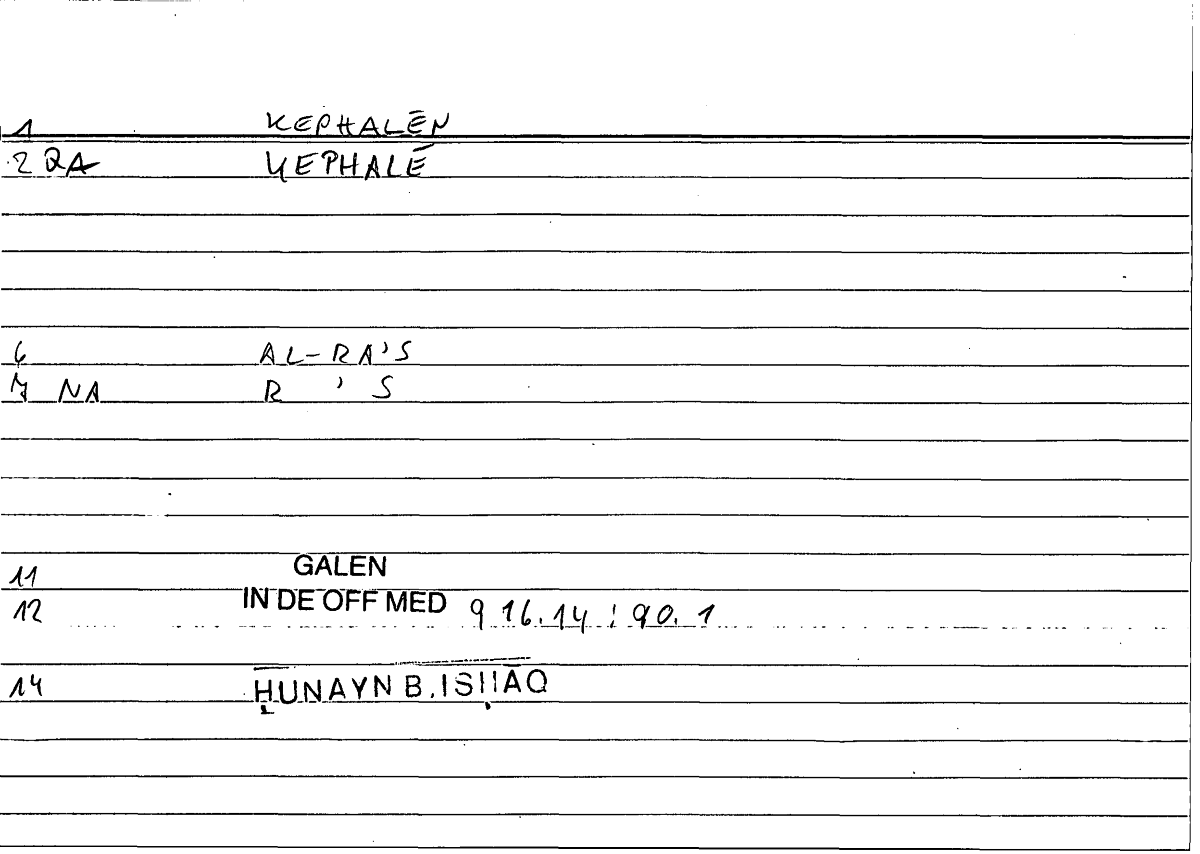 1 KEPHALĒN
2 QA KEPHALĒ
6 AL-RA'S
7 NA R ' S
11 GALEN
12 IN DE OFF MED 916.14 : 90.1
14 ḤUNAYN B. ISḤĀQ